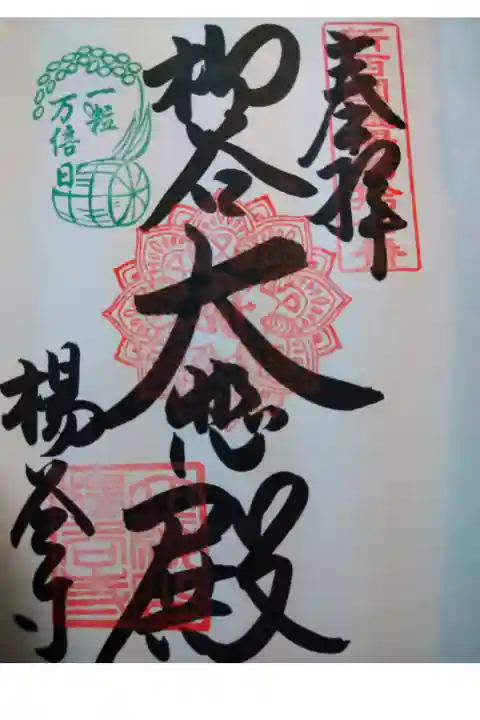 奉拝
柳谷
大悲殿
楊谷寺
一粒
万倍日